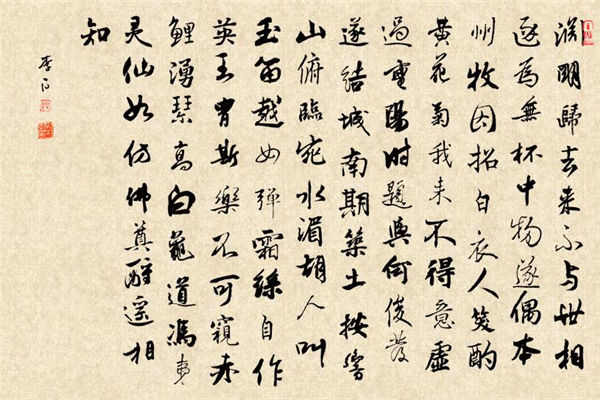 淵明歸去来不与世相
逐為無杯中物遂偶本
州牧因招白衣人笑酌
黄花菊我来不得意虛
過重陽時題與何俊發
遂結城南期築土按響
山俯臨宛水湄胡人叫
玉笛越女弹霜絲自作
英王胄斯樂不可窺赤
鯉湧琴高白龜道馮夷
灵仙如仿佛奠酹遥相
知
李白